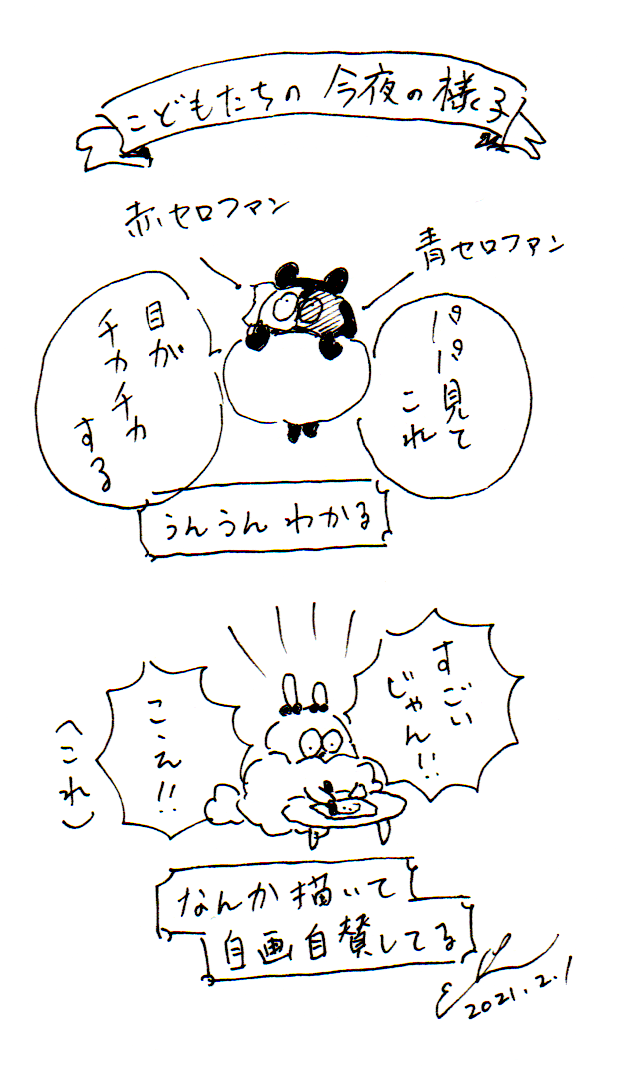 こどもたちの 今夜の様子
赤セロファン
青セロファン
パパ見て
これ
目が
チカチカ
する
うんうん わかる
すごい
じゃん!!
こえ!!
(これ)
なんか描いて
自画自賛してる
2021.2.1